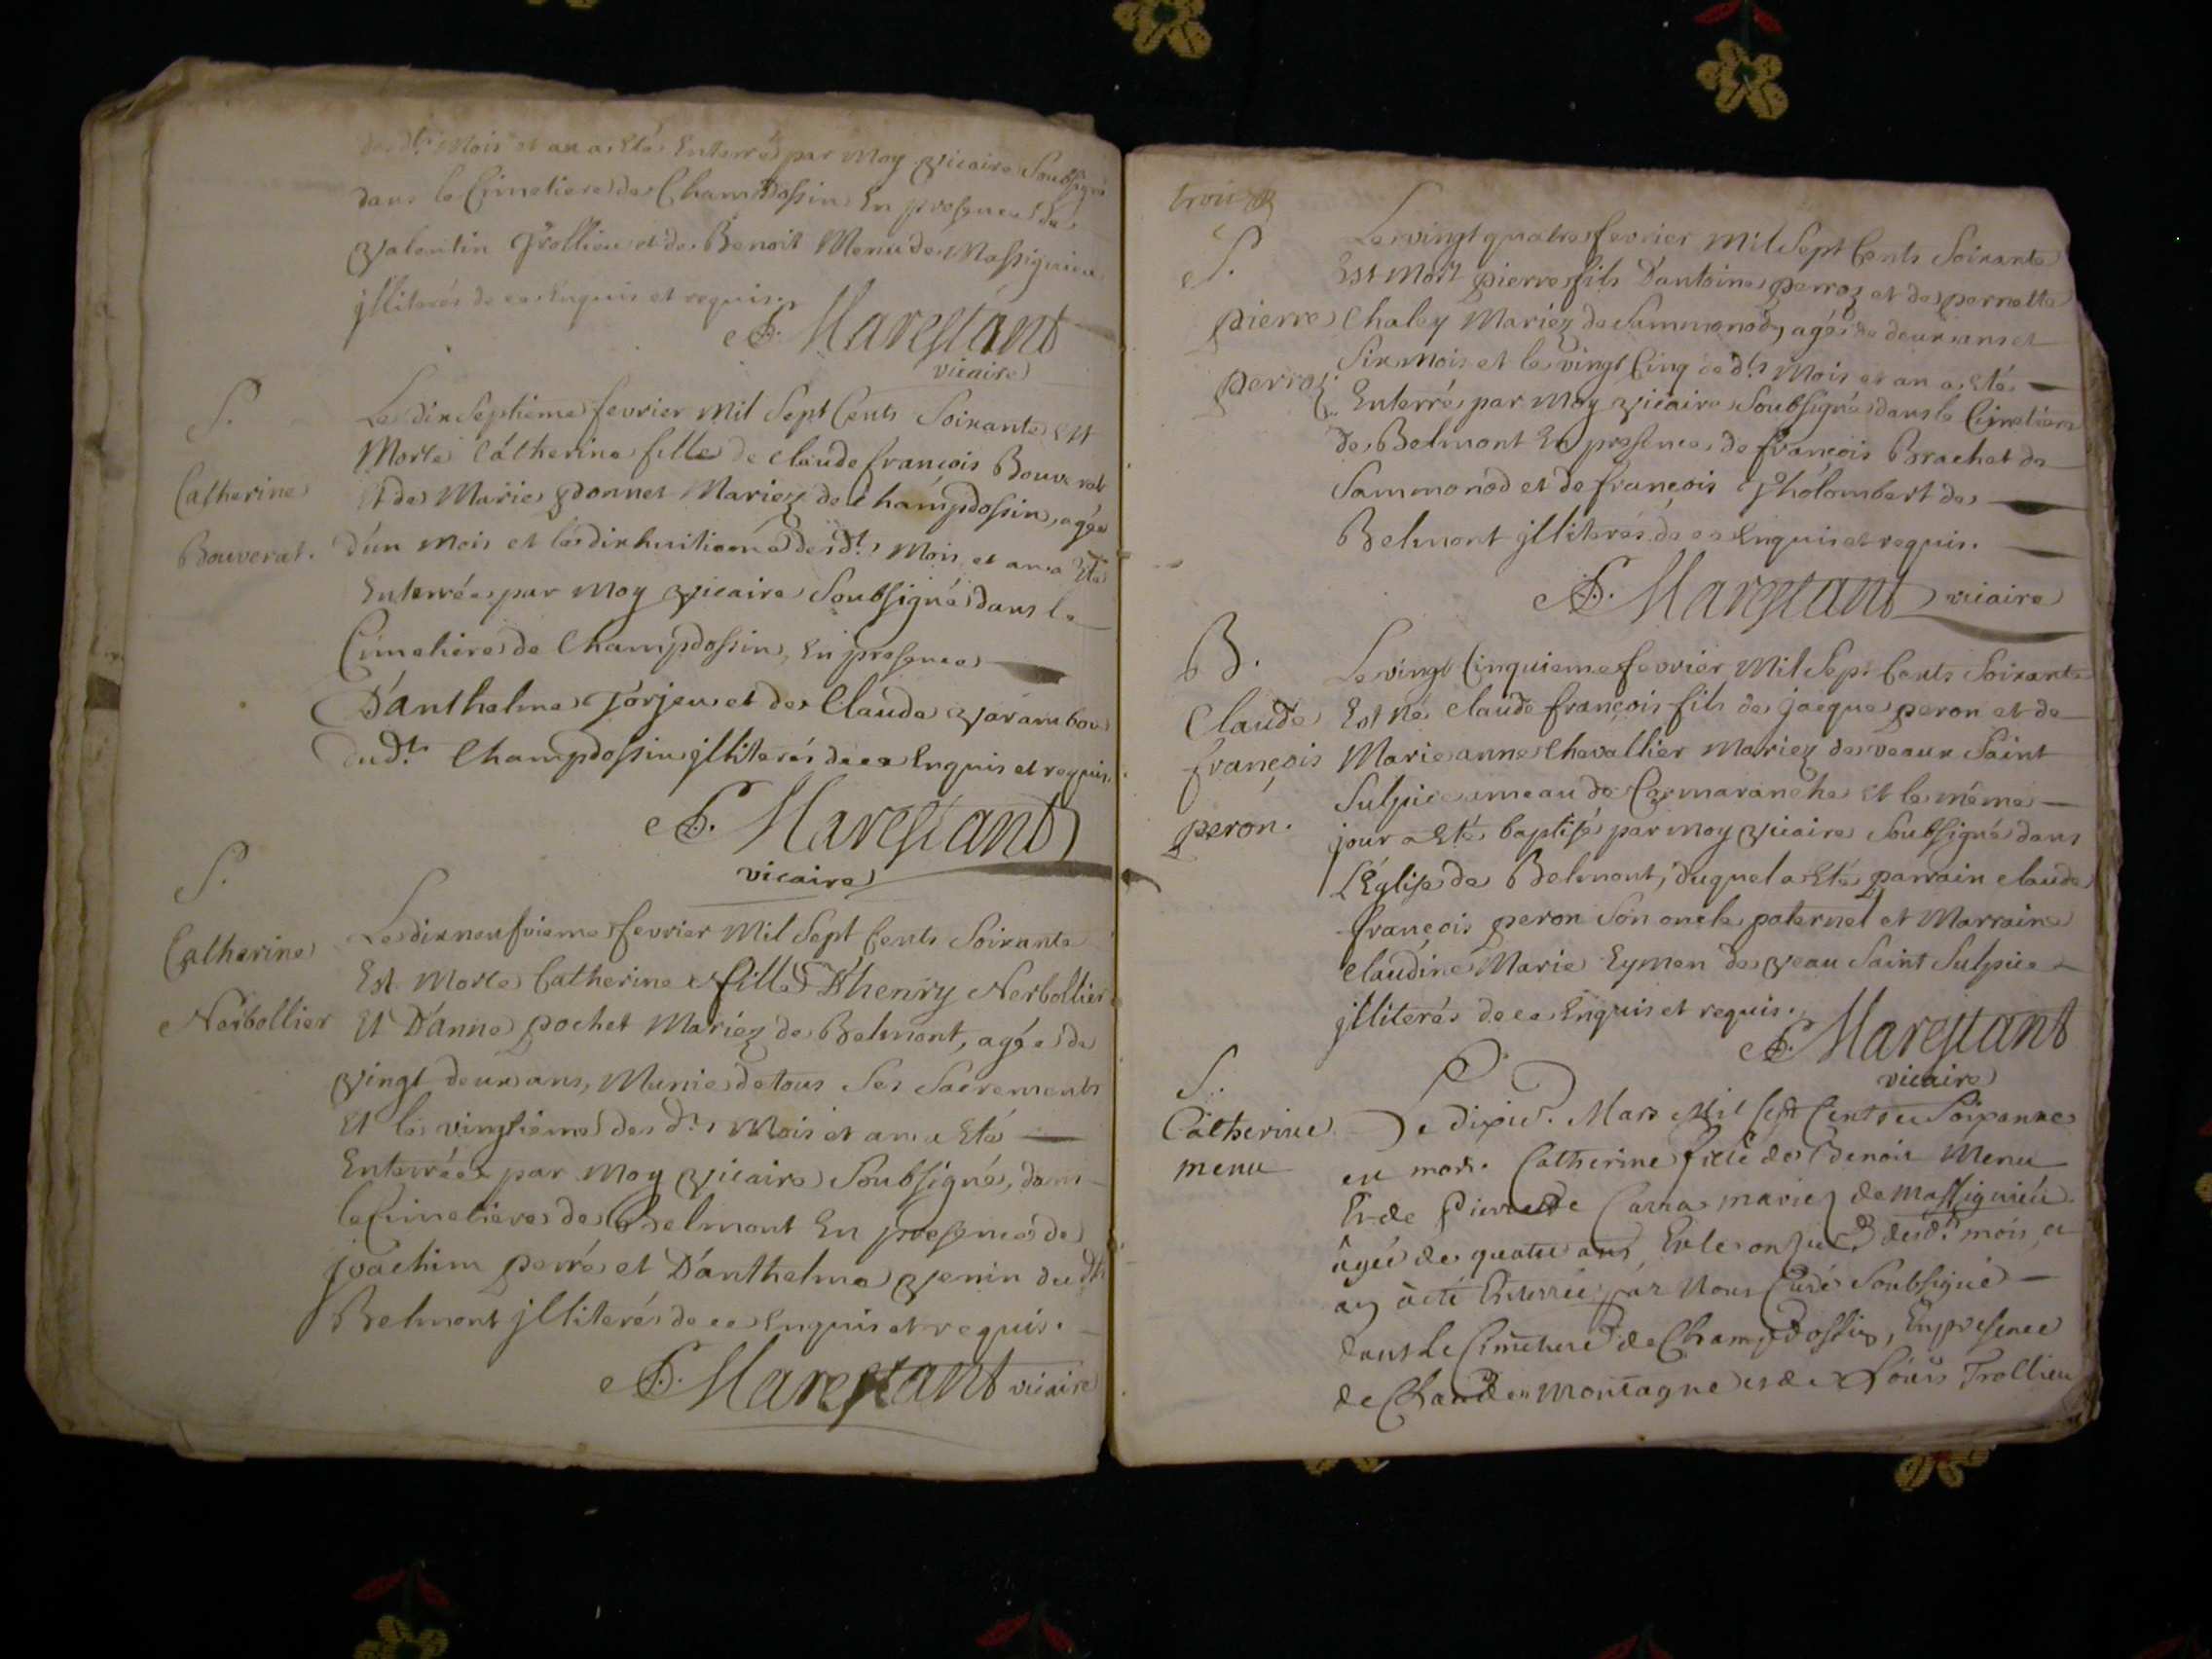 des dts Mois et an a Eté Enterré par Moy Vicaire Soubsigné
dans le Cimetiere de Champdossin En presence de
Valentin Trollieu et de Benoit Menu de Massignieu
jlliterés de ce Enquis et requis.
Marestant
vicaire
S.
Catherine
Bouverat.
Le dix Septieme fevrier Mil Sept Cents Soixante Est
Morte Catherine fille de claude françois Bouverat
Et de Marie ponnet Mariez de Champdossin, agée
d'un Mois et le dix huitieme des dts Mois et an a Eté
Enterrée par Moy Vicaire Soubsigné dans le
Cimetiere de Champdossin, En presence
D'anthelme jorjeu et de Claude Varambou
du dt. Champdossin jlliterés de ce Enquis et requis.
Marestant
vicaire
S.
Catherine
Nerbollier
Le dix neufvieme fevrier Mil Sept Cents Soixante
Est Morte Catherine fille D'henry Nerbollier
Et D'anne pochet Mariez de Belmont, agée de
Vingt deux ans, Munie de tous Ses Sacrements
Et le vingtieme des dts Mois et an a Eté
Enterrée par Moy Vicaire Soubsigné, dans
le Cimetiere de Belmont En presence de
joachim perré et D'anthelme Venin du dt
Belmont jlliterés de ce Enquis et requis.
Marestant vicaire
trois
S.
pierre
perroz
Le vingt quatre fevrier Mil Sept Cents Soixante
Est Mort pierre fils D'antoine perroz et de pernette
Chaley Mariez de Sammonod, agé de deux ans et
Six Mois et le vingt Cinq des dts Mois et an a Eté
Enterré par Moy Vicaire Soubsigné dans le Cimetiere
de Belmont En presence de françois Brachet de
Sammonod et de françois Tholombert de
Belmont jlliterés de ce Enquis et requis.
Marestant vicaire
B.
Claude
françois
peron.
Le vingt Cinquieme fevrier Mil Sept Cents Soixante
Est né claude françois fils de jacque peron et de
Marie anne Chevallier Mariez de veaux Saint
Sulpice ameau de Cormaranche et le même
jour a Eté baptisé par moy Vicaire Soubsigné dans
L'Eglise de Belmont, duquel a Eté parrain claude
françois peron Son oncle paternel et Marraine
claudine Marie Eymen de Veau Saint Sulpice
jlliterés de ce Enquis et requis.
Marestant
vicaire
S.
Catherine
menu
Le dixie. Mars Mil Sept Cents Soixante
est morte Catherine fille de Benoit Menu
Et de Pierrette Carra mariez de Massignieu
agée de quatre ans Et le onzie des dts mois et
an a eté Enterrée par Nous Curé Soubsigné
dans le Cimetiere de Champdossin, En presence
de Claude Montagne et de Louis Trollieu